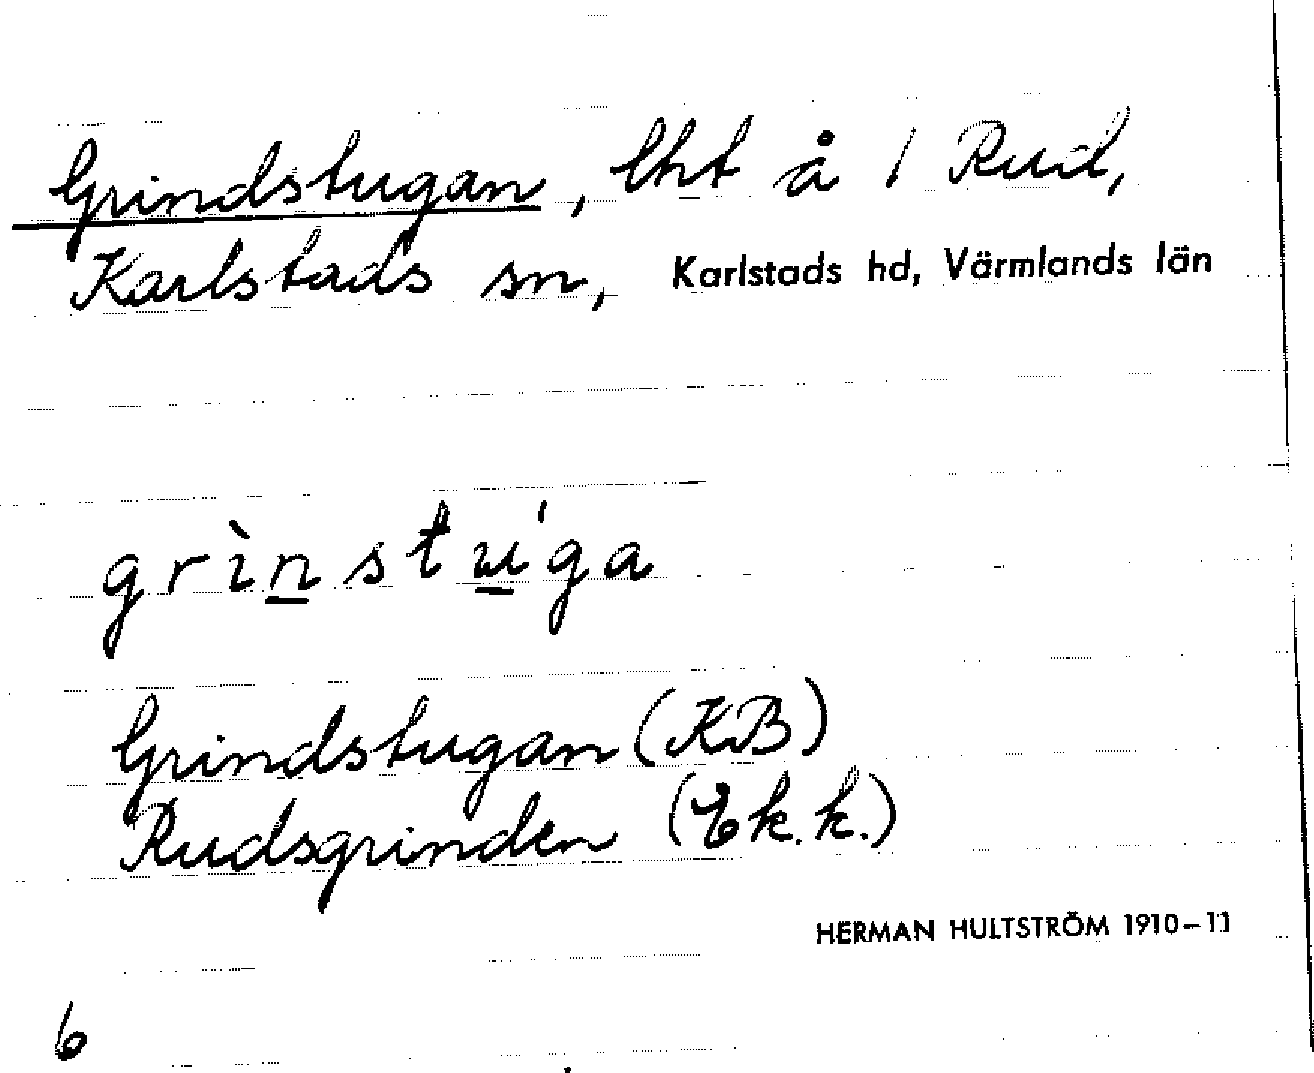 Grindstugan, lht å 1 Rud,
Karlstads sn, Karlstads hd, Värmlands län
grìnstu'ga
Grindstugan (KB)
Rudsgrinden (Ek.k.)
HERMAN HULTSTRÖM 1910–11
6